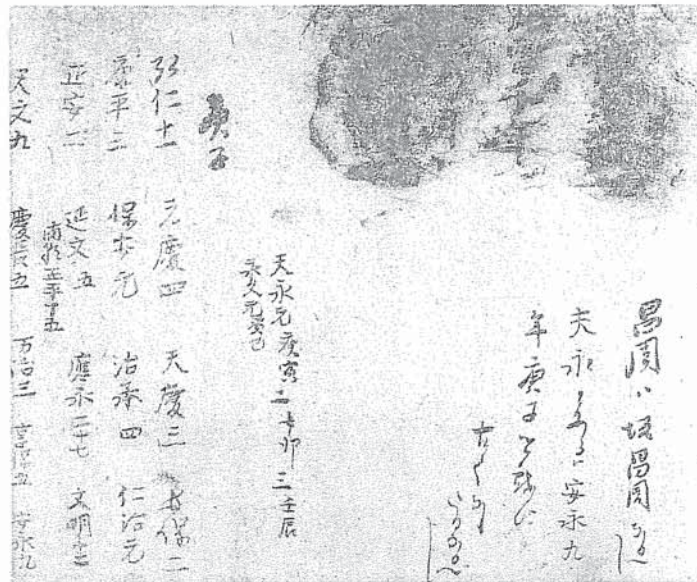 昌周ハ坂昌周なるへし
天永とあるハ安永九
年庚子
天永元庚寅二辛卯三壬辰
永久元癸巳
庚子
弘仁十一 元慶四 天慶三 長保二
康平三 保安元 治承四 仁治元
正安二 延文五 應永二十七 文明十二
南朝正平十五
天文九 慶長五 万治三 享保五 安永九